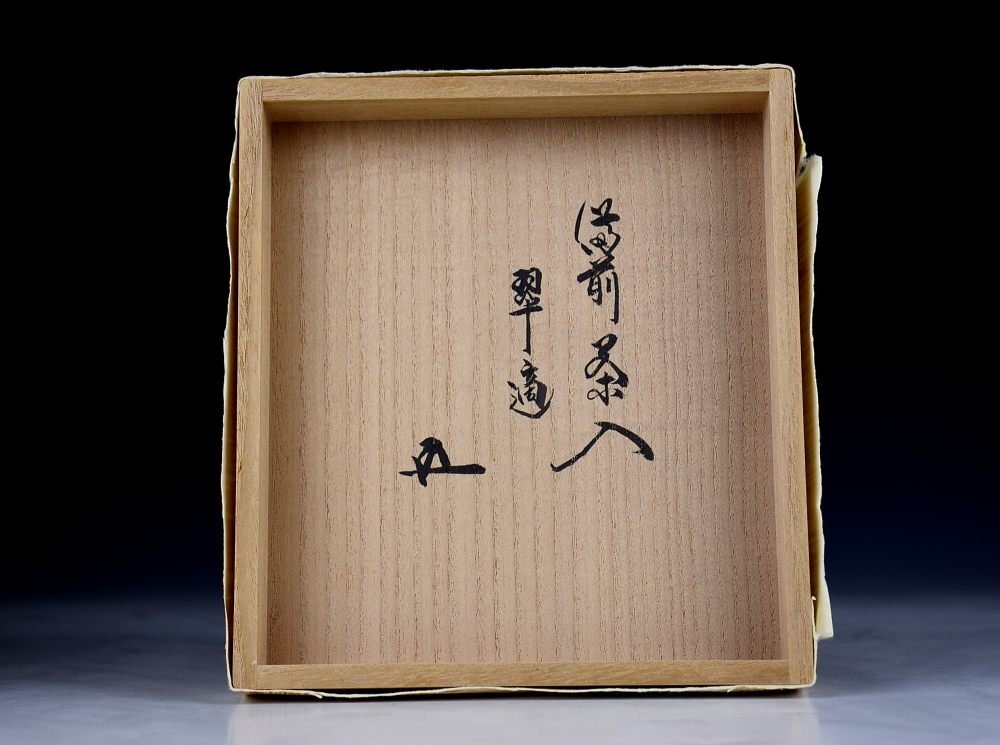 備前茶入
翠適